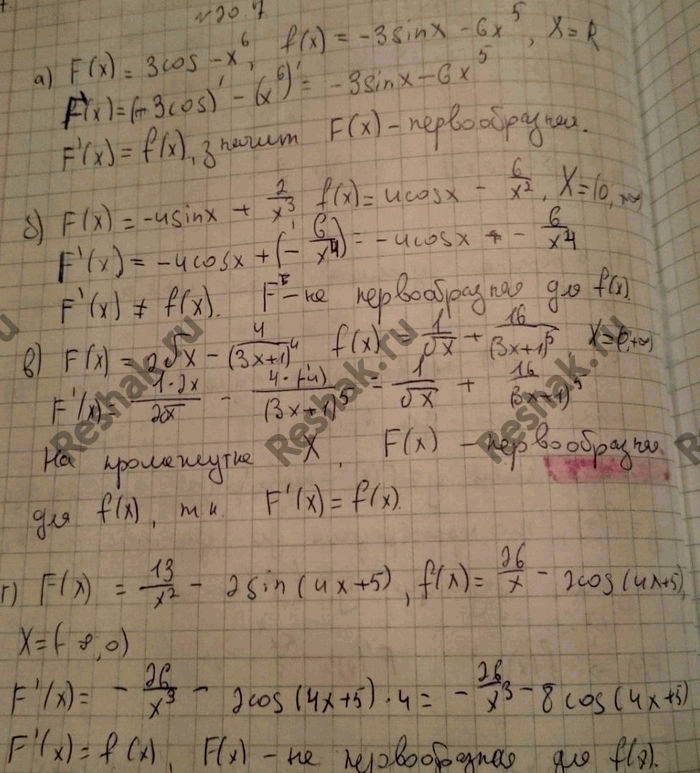 № 20 7
а) F(x) = 3cos - x⁶, f(x) = -3sinx - 6x⁵, X = R
F'(x) = (-3cos)' - (x⁶)' = -3sinx - 6x⁵
F'(x) = f(x), значит F(x) - первообразная.
б) F(x) = -4sinx + 2/x³ f(x) = 4cosx - 6/x², X = (0, ∞)
F'(x) = -4cosx + (- 6/x⁴)' = -4cosx - 6/x⁴
F'(x) ≠ f(x). F - не первообразная для f(x)
в) F(x) = 2√x - 4/(3x+1)⁴ f(x) = 1/√x + 16/(3x+1)⁵ X = (0, +∞)
F'(x) = 1·2x/2x - 4·(-4)/(3x+1)⁵ = 1/√x + 16/(3x+1)⁵
На промежутке X, F(x) - первообразная
для f(x), т.к. F'(x) = f(x).
г) F(x) = 13/x² - 2sin(4x+5), f(x) = 26/x - 2cos(4x+5),
X = (-∞, 0)
F'(x) = - 26/x³ - 2cos(4x+5)·4 = - 26/x³ - 8cos(4x+5)
F'(x) = f(x), F(x) - не первообразная для f(x).
Reshak.ru
Reshak.ru
Reshak.ru